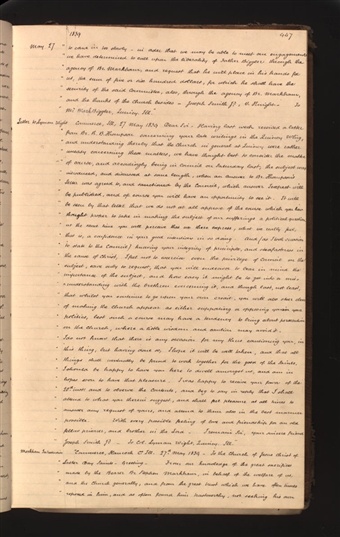 1839 447
May 27 " to come in so slowly – in order that we may be able to meet our engagements
" we have determined to call upon the liberality of Father Bigger through the
" agency of Mr. Markham, and request that he will place in his hands for
" us, the sum of five or six hundred dollars, for which he shall have the
" security of the said Committee, also, through the agency of Mr. Markham,
" and the thanks of the Church besides – Joseph Smith Jr, V. Knight. To
" Mr. Bigger, Quincy, Ill.
Letter to Lyman Wight. Commerce, Ill. 27 May 1839 Dear Sir: Having last week received a letter
" from Dr. R. B. Thompson concerning your late writings in the Quincy Whig,
" and understanding thereby that the Church in general at Quincy were rather
" uneasy concerning these matters, we have thought best to consider the matter
" of course, and accordingly being in Council on Saturday last, the subject was
" introduced, and discussed at some length, when an answer to Dr. Thompson's
" letter was agreed to, and sanctioned by the Council, which answer I expect will
" be published, and of course you will have an opportunity to see it. It will
" be seen by that letter that we do not at all approve of the course which you have
" thought proper to take in making the subject of our sufferings a political question
" at the same time you will perceive that we there express, what we really feel,
" that is, a confidence in your good intentions in so doing. And (as I took occasion
" to state to the Council) knowing your integrity of principle, and steadfastness in
" the cause of Christ, I feel not to exercise even the privilege of Council on the
" subject, save only to request, that you will endeavor to bear in mind the
" importance of the subject, and how easy it might be to get into a mis-
" understanding with the brethren concerning it, and though last, not least,
" that whilst you continue to go upon your own credit, you will also steer clear
" of making the Church appear as either supporting or opposing you in your
" politics, lest such a course may have a tendency to bring about persecution
" on the Church, where a little wisdom and caution may avoid it.
" I do not know that there is any occasion for my thus cautioning you, in
" this thing, but having done so, I hope it will be well taken, and that all
" things shall eventually be found to work together for the good of the Saints.
" I should be happy to have you here to dwell amongst us, and am in
" hopes soon to have that pleasure. I was happy to receive your favor of the
" 20th inst. and to observe the contents, and beg to say in reply that I shall
" attend to what you therein suggest, and shall feel pleasure at all times to
" answer any request of yours, and attend to them also in the best manner
" possible. With every possible feeling of love and friendship for an old
" fellow prisoner, and brother in the Lord I remain Sir, your sincere friend
" Joseph Smith Jr. To Col. Lyman Wight, Quincy, Ill.
" Commerce, Hancock Co. Ill. 27th May 1839. To the Church of Jesus Christ of
" Latter Day Saints: Greeting. From our knowledge of the great sacrifices
" made by the Bearer Br. Stephen Markham, in behalf of the welfare of us
" and the Church generally, and from the great trust which we have often times
" reposed in him, and as often found him trustworthy, not seeking his own